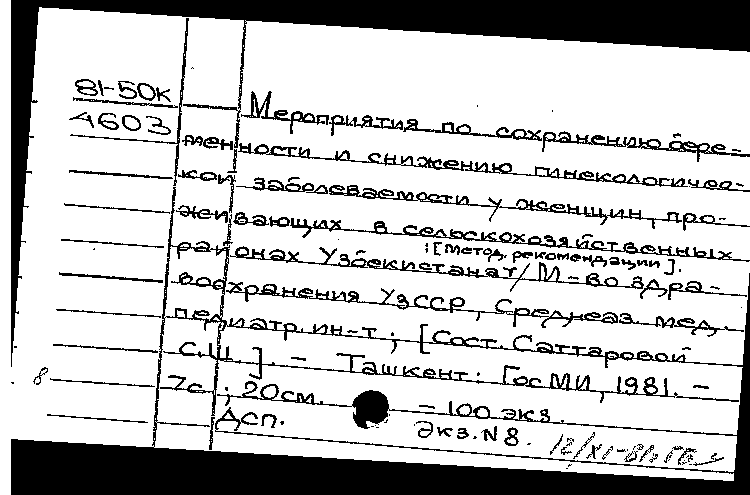 81-50к
4603
Мероприятия по сохранению бере-
менности и снижению гинекологичес-
кой заболеваемости у женщин, про-
живающих в сельскохозяйственных
районах Узбекистана : [Метод. рекомендации]. / М-во здра-
воохранения УзССР, Среднеаз. мед.
педиатр. ин-т ; [Сост. Саттаровой
С.Ш.]. - Ташкент: ГосМИ, 1981. -
8 7с. ; 20см. - 100 экз.
Дсп. Экз. N8. 12/XI-81г.